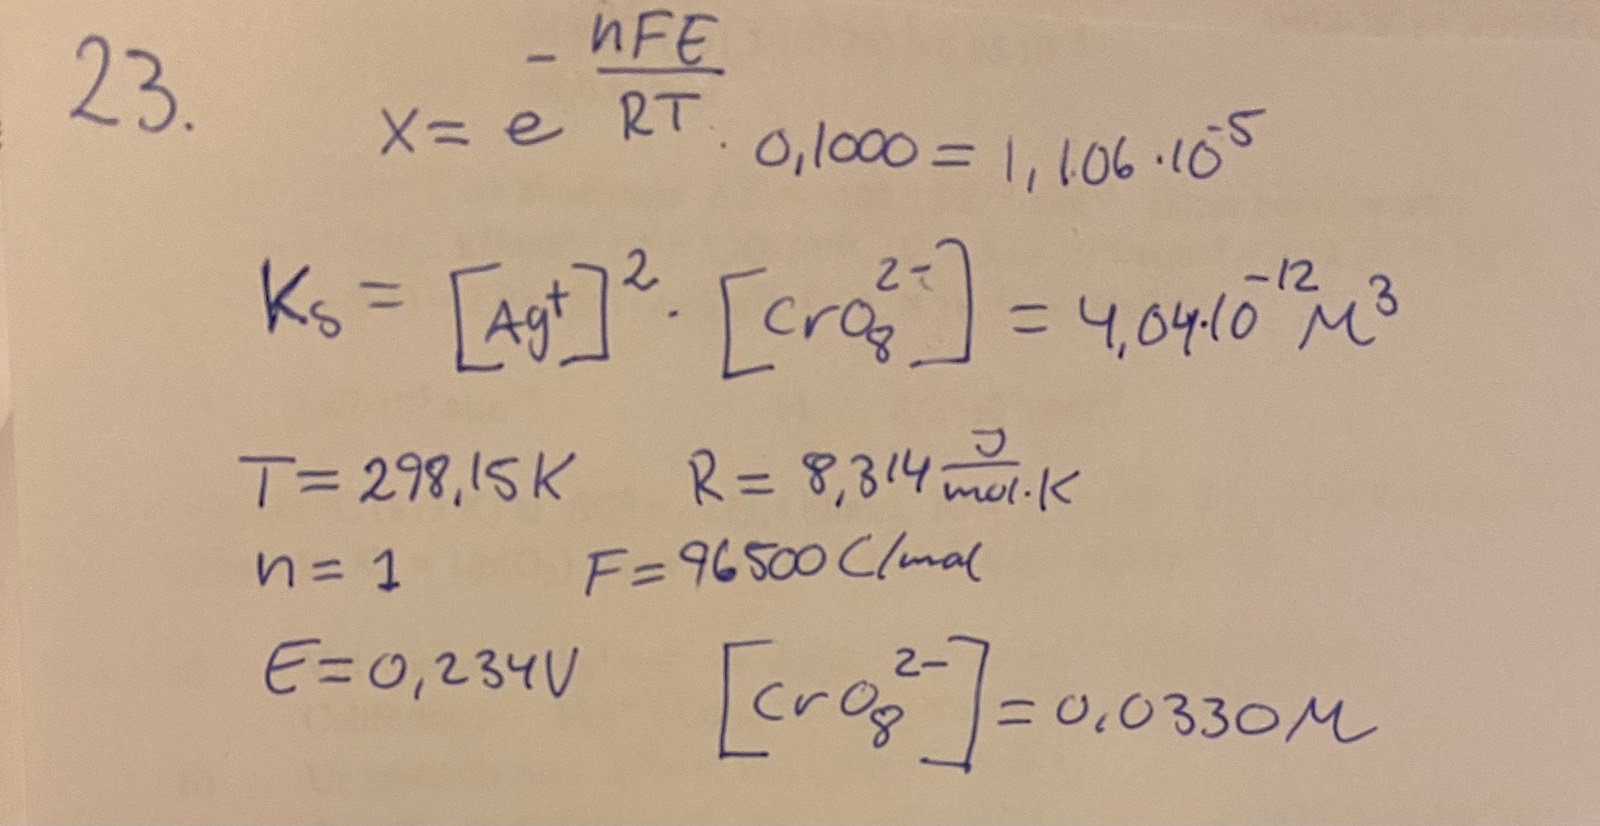 23. x = e^(-nFE/RT) · 0,1000 = 1,106 · 10^-5
Ks = [Ag+]^2 · [CrO8^2-] = 4,04·10^-12 M^3
T = 298,15K R = 8,314 J/mol·K
n = 1 F = 96500 C/mol
E = 0,234V [CrO8^2-] = 0,0330M